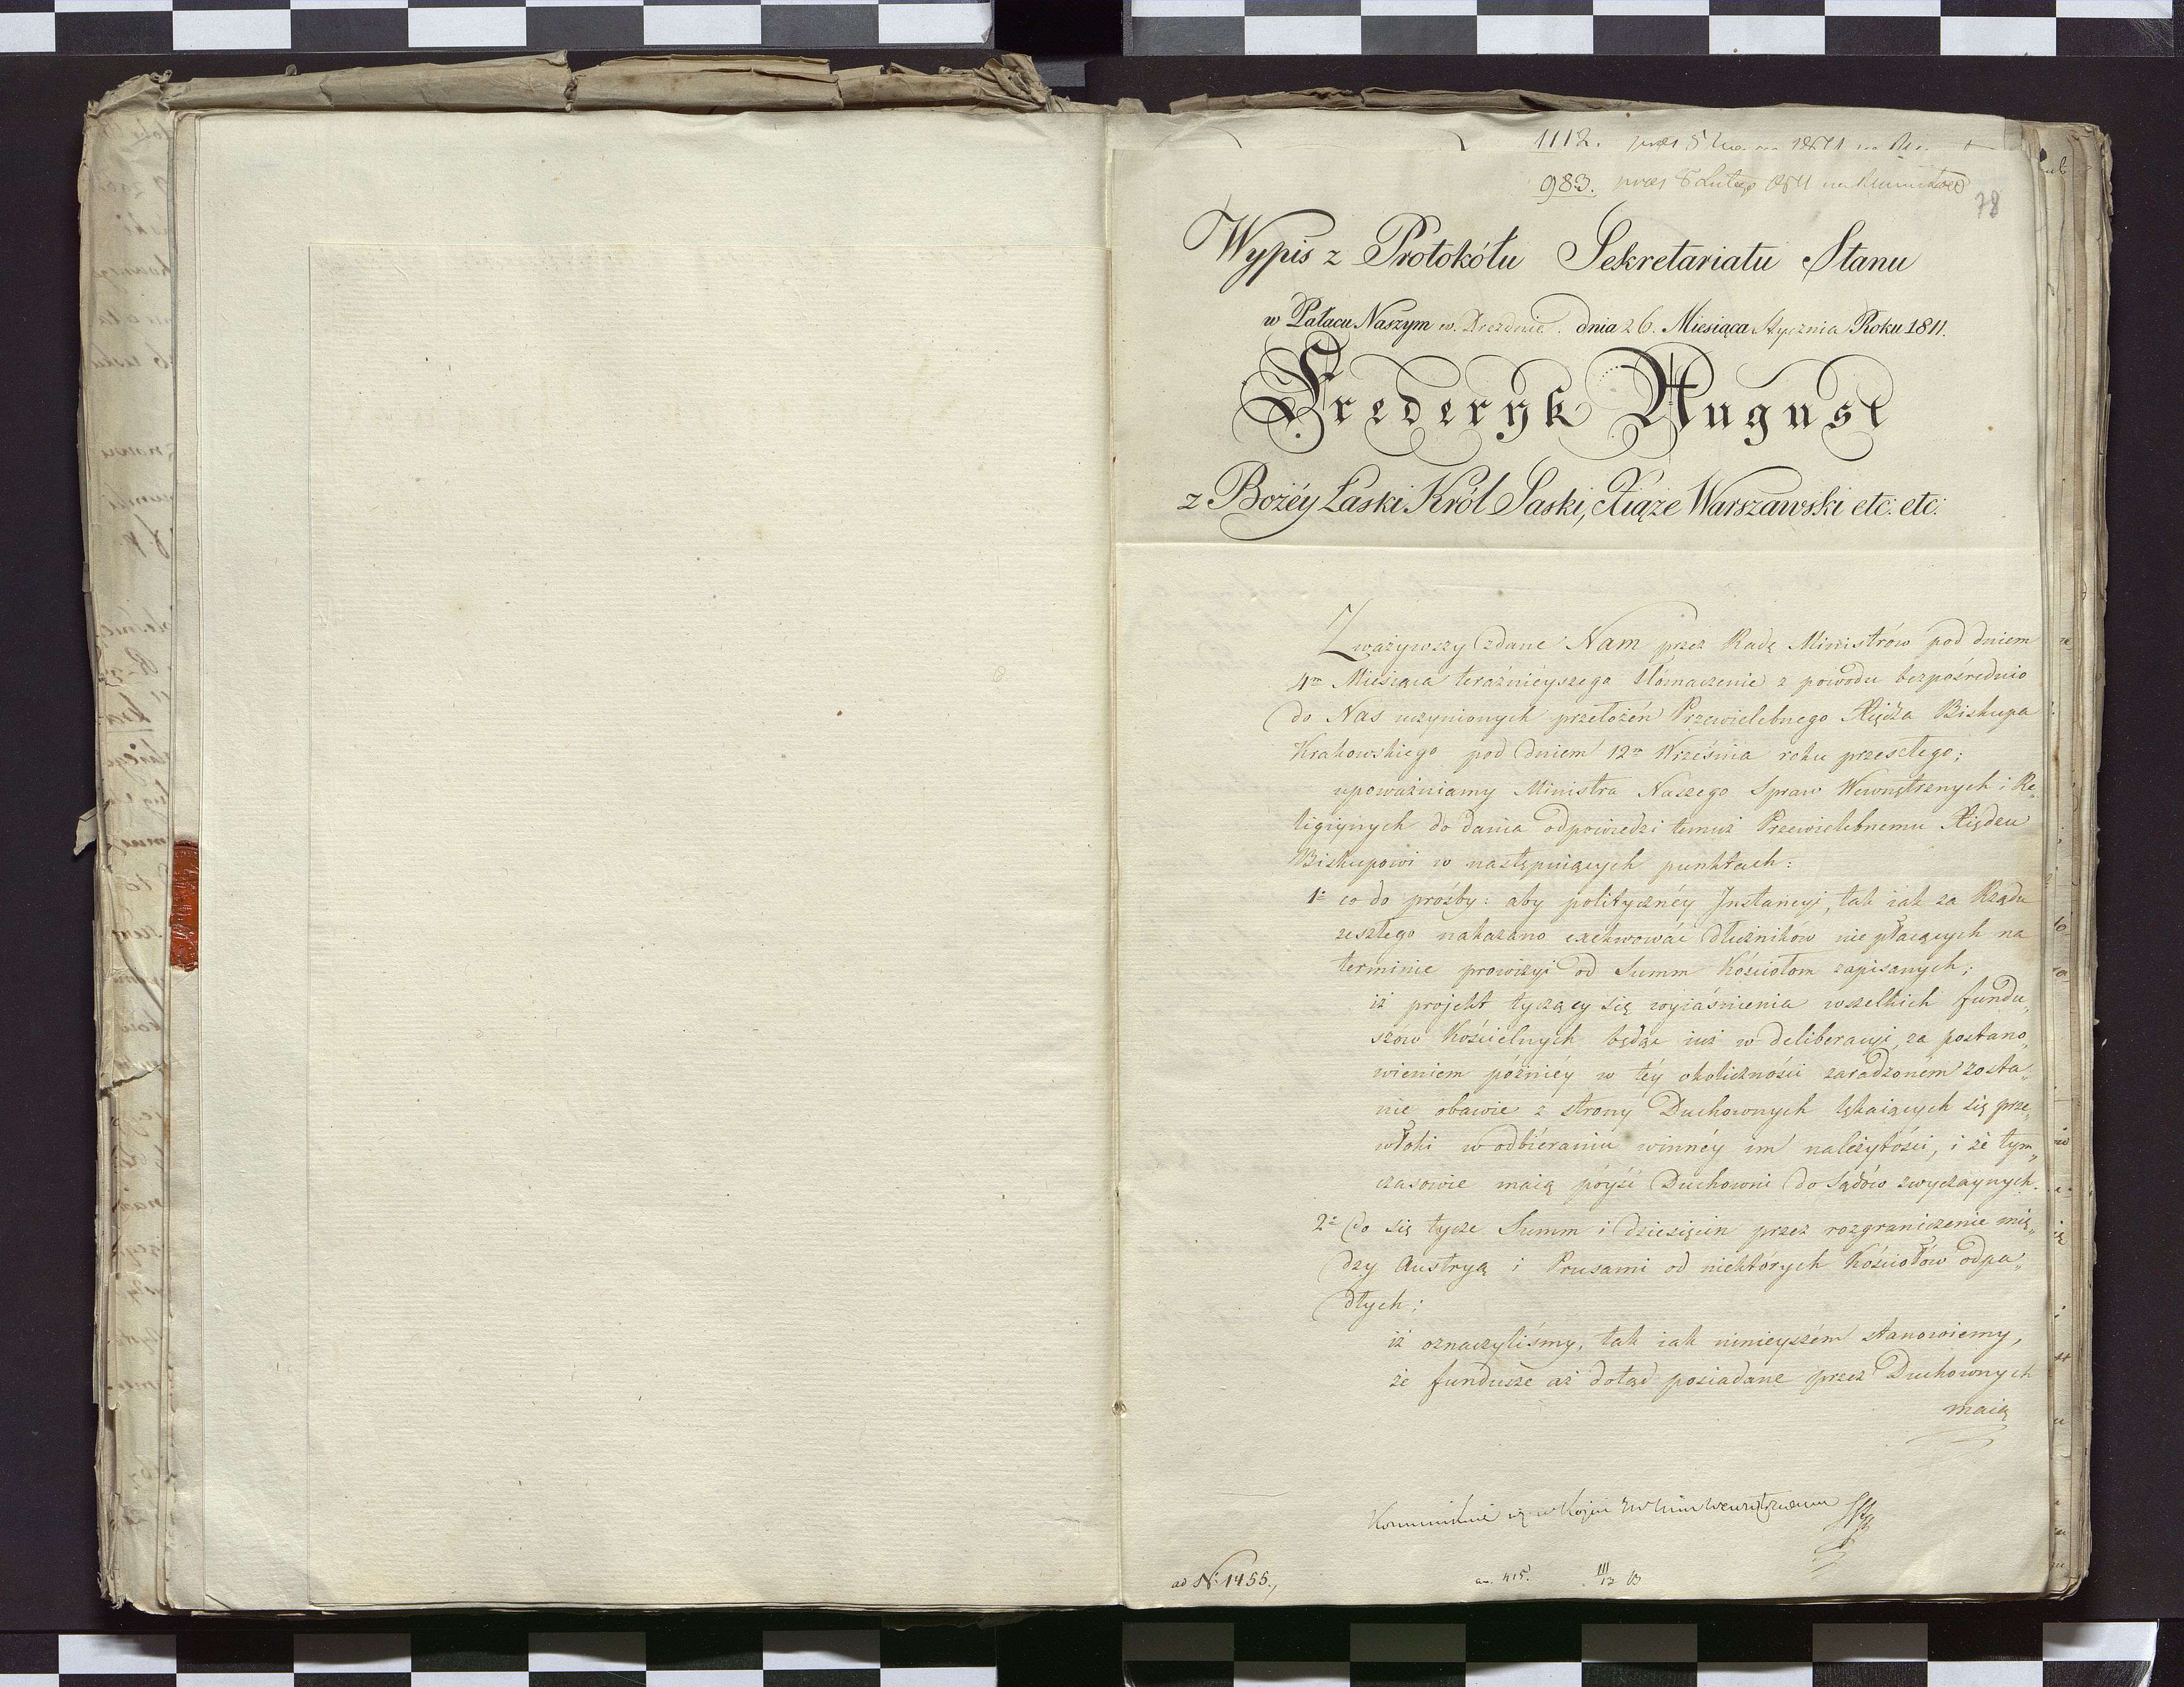 1112.
983. 8 Lutego 1811
78
Wypis z Protokółu Sekretariatu Stanu
w Pałacu Naszym w. Dreznie. dnia 26. Miesiąca Stycznia Roku 1811.
Frederyk August
z Bożéy Łaski Król Saski, Xiąże Warszawski etc: etc:
Zważywszy zdane Nam przez Radę Ministrów pod dniem
4m Miesiąca teraźnieyszego tłómaczenie z powodu bezpośrednio
do Nas uczynionych przełożeń Przewielebnego Xiędza Biskupa
Krakowskiego pod dniem 12m Września roku przeszłego;
upoważniamy Ministra Naszego Spraw Wewnętrznych i Re„
ligiynych do dania odpowiedzi temuż Przewielebnemu Xiędzu
Biskupowi w następuiących punktach:
1° co do prośby: aby politycznéy Instancyi, tak iak za Rządu
zeszłego nakazano exekwować dłużników nie płacących na
terminie prowizyi od Summ Kościołom zapisanych;
iż projekt tyczący się wyiaśnienia wszelkich fundu„
szów Kościelnych będąc iuż w deliberacyi, za postano„
wieniem póżniéy w téy okoliczności zaradzoném zosta„
nie obawie z strony Duchownych lękaiących się prze„
włoki w odbiéraniu winnéy im należytości, i że tym„
czasowie maią póyść Duchowni do Sądów zwyczaynych.
2° Co się tycze Summ i dziesięcin przez rozgraniczenie mię„
dzy Austryą i Prusami od niektórych Kościołów odpa„
dłych;
iż oznaczyliśmy, tak iak ninieyszém stanowiemy,
że fundusze aż dotąd posiadane przez Duchownych
maią
ad N: 1455.,
415. III